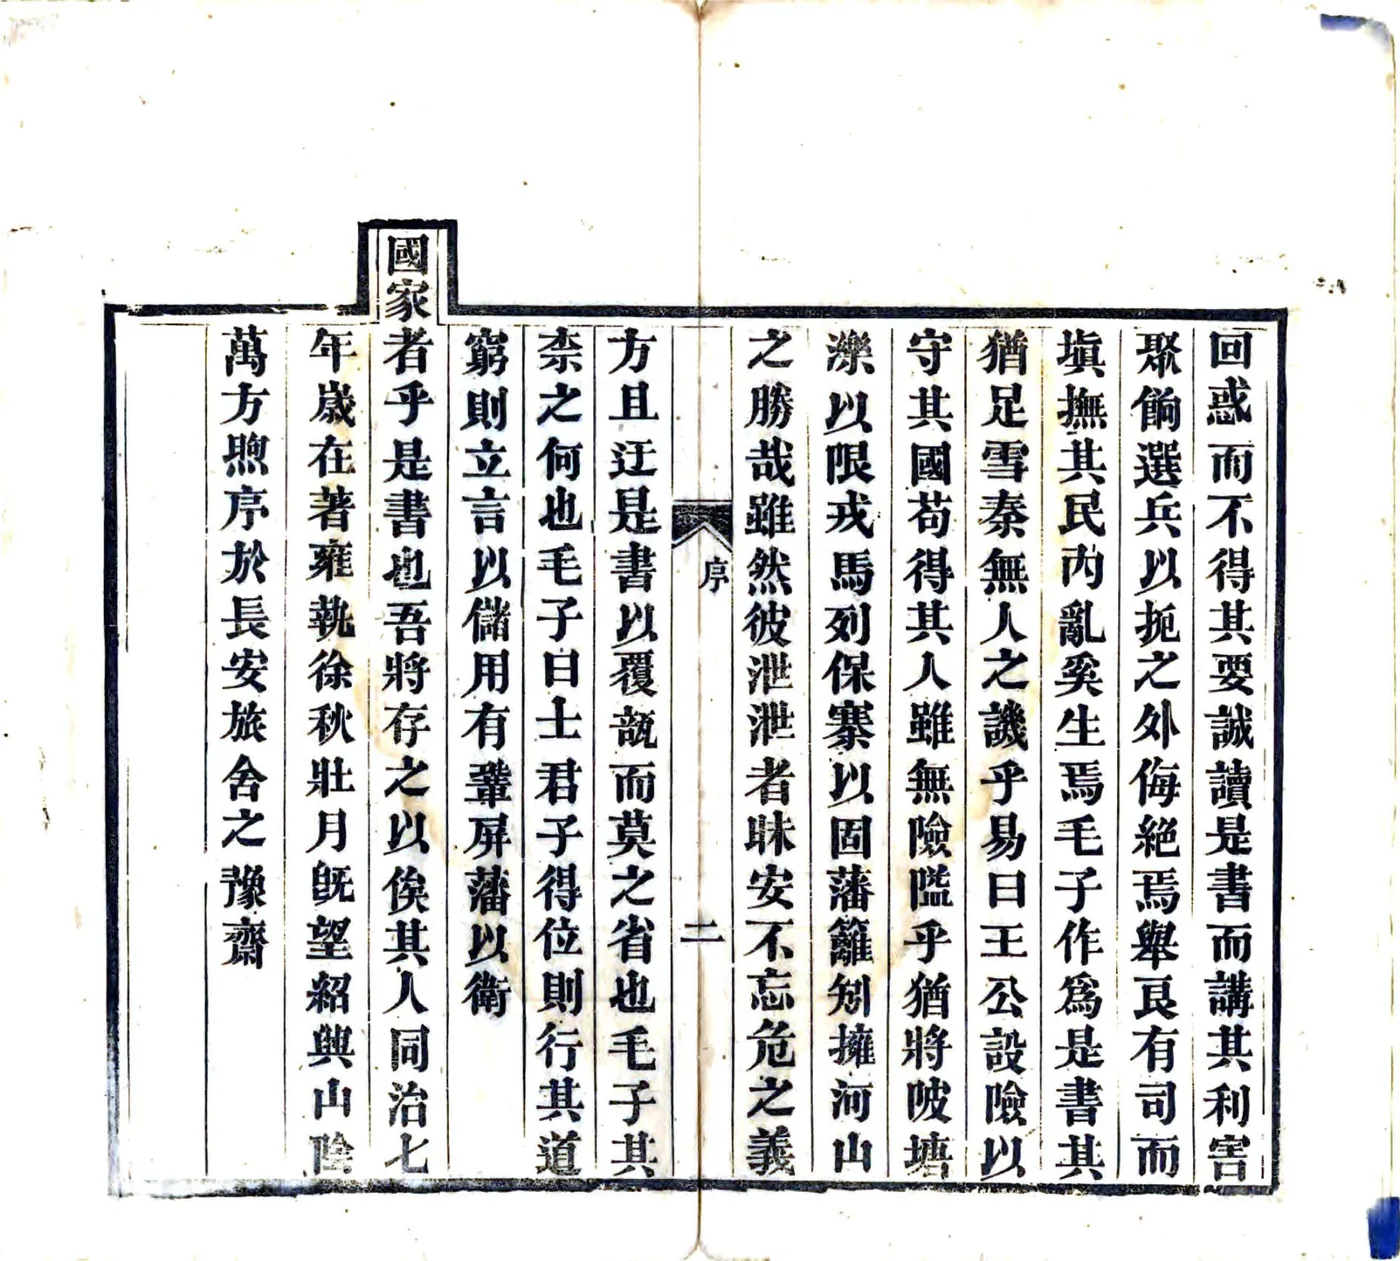 回惑而不得其要誠讀是書而講其利害
聚餉選兵以扼之外侮絕焉舉良有司而
塡撫其民內亂奚生焉毛子作爲是書其
猶足雪秦無人之譏乎易曰王公設險以
守其國苟得其人雖無險隘乎猶將陂塘
濼以限戎馬列保寨以固藩籬矧擁河山
之勝哉雖然彼泄泄者昧安不忘危之義
序
二
方且迂是書以覆瓿而莫之省也毛子其
柰之何也毛子曰士君子得位則行其道
窮則立言以儲用有鞏屏藩以衛
國家者乎是書也吾將存之以俟其人同治七
年歲在著雍執徐秋壯月旣望紹興山陰
萬方煦序於長安旅舍之豫齋